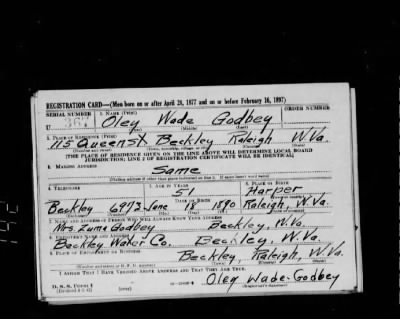 REGISTRATION CARD—(Men born on or after April 28, 1877 and on or before February 16, 1897)
SERIAL NUMBER 1. NAME (Print) ORDER NUMBER
U 367 Oley Wade Godbey
(First) (Middle) (Last)
2. PLACE OF RESIDENCE (Print)
115 Queen St Beckley Raleigh W.Va.
(Number and street) (Town, township, village, or city) (County) (State)
[THE PLACE OF RESIDENCE GIVEN ON THE LINE ABOVE WILL DETERMINE LOCAL BOARD
JURISDICTION; LINE 2 OF REGISTRATION CERTIFICATE WILL BE IDENTICAL]
3. MAILING ADDRESS
Same
(Mailing address if other than place indicated on line 2. If same insert word same)
4. TELEPHONE 5. AGE IN YEARS 6. PLACE OF BIRTH
51 Harper
DATE OF BIRTH
Beckley 6973 June 18 1890 Raleigh, W.Va.
7. NAME AND ADDRESS OF PERSON WHO WILL ALWAYS KNOW YOUR ADDRESS
Mrs. Zuma Godbey Beckley, W.Va.
8. EMPLOYER'S NAME AND ADDRESS
Beckley Water Co. Beckley, W.Va.
9. PLACE OF EMPLOYMENT OR BUSINESS
Beckley, Raleigh, W.Va.
(Number and street or R. F. D. number) (Town) (County) (State)
I AFFIRM THAT I HAVE VERIFIED ABOVE ANSWERS AND THAT THEY ARE TRUE.
D. S. S. Form 1
Oley Wade Godbey
(Registrant's signature)